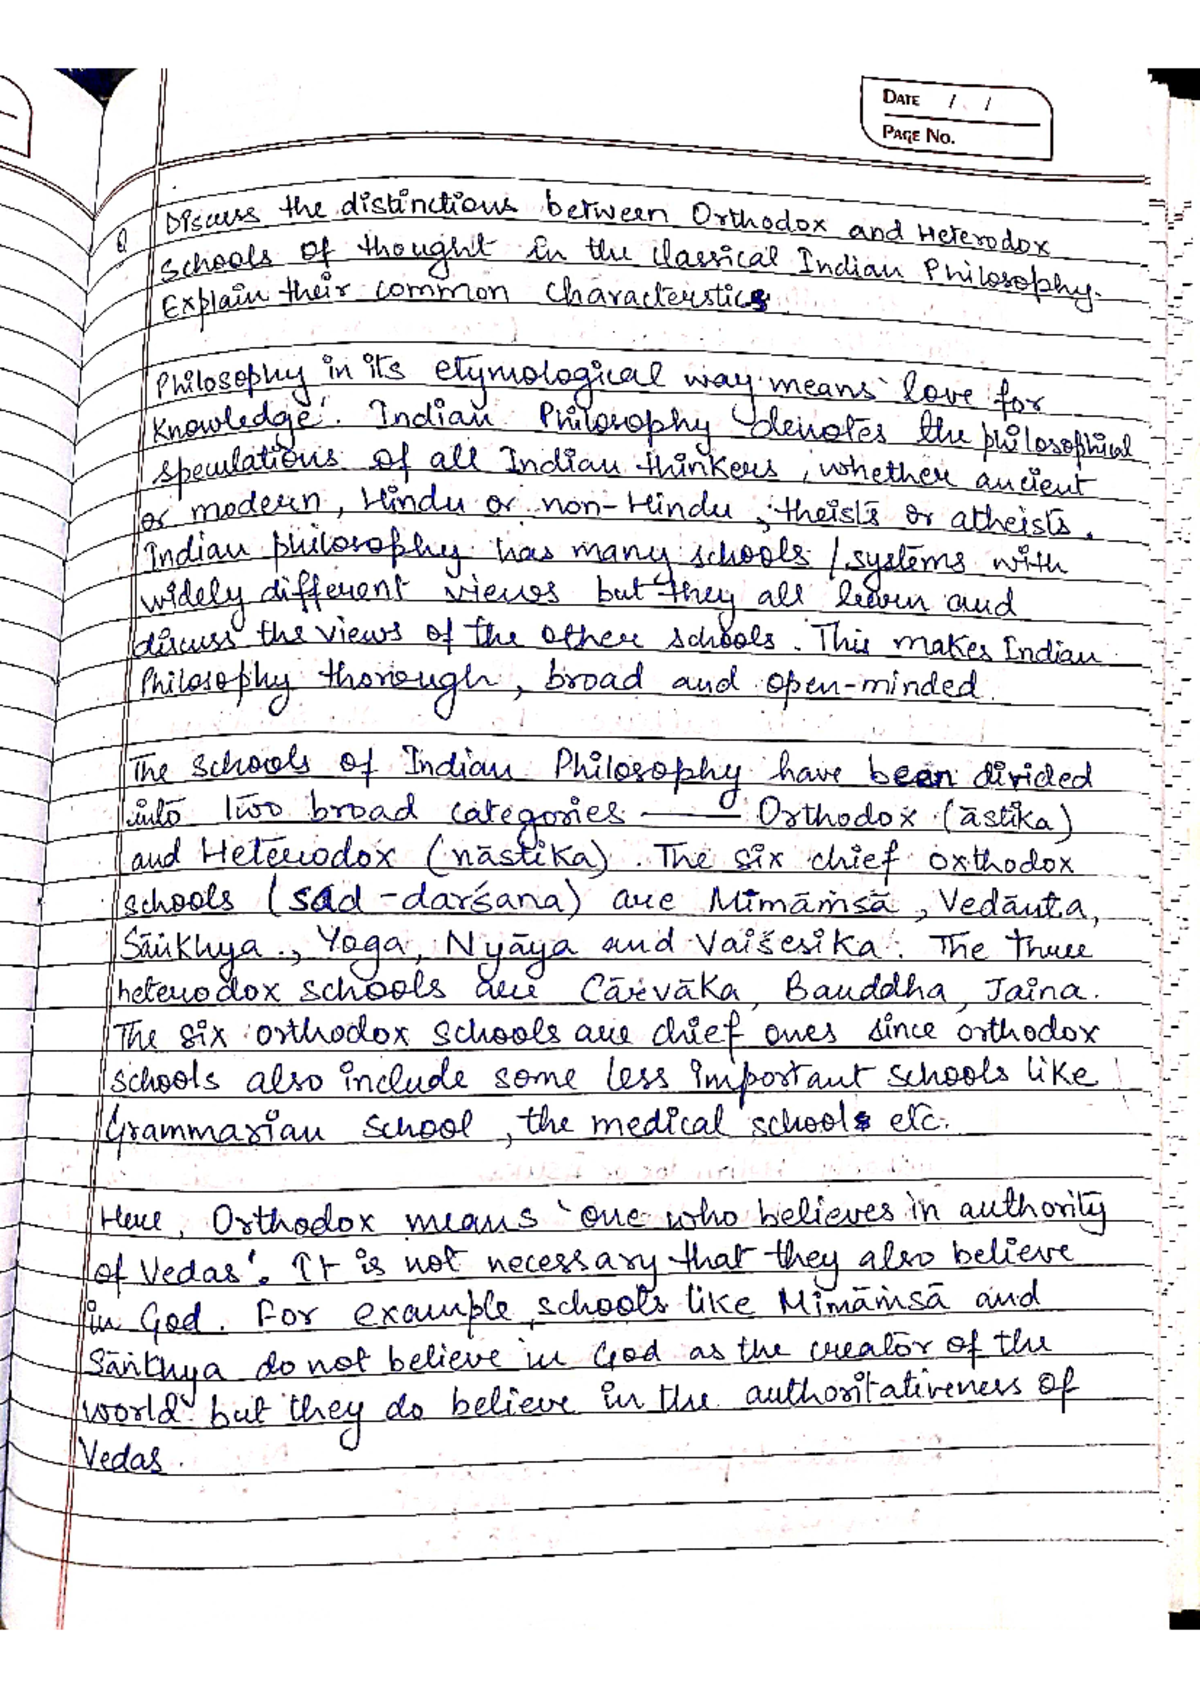 DATE / /
PAGE NO.
Q Discuss the distinctions between Orthodox and Heterodox
schools of thought in the classical Indian Philosophy.
Explain their common characteristics.
Philosophy in its etymological way means 'love for
knowledge'. Indian Philosophy denotes the philosophical
speculations of all Indian thinkers, whether ancient
or modern, Hindu or non-Hindu, theists or atheists.
Indian philosophy has many schools / systems with
widely different views but they all learn and
discuss the views of the other schools. This makes Indian
Philosophy thorough, broad and open-minded.
The schools of Indian Philosophy have been divided
into two broad categories —— Orthodox (āstika)
and Heterodox (nāstika). The six chief orthodox
schools (sad-darśana) are Mīmāṁsā, Vedānta,
Sāṅkhya, Yoga, Nyāya and Vaiśesika. The three
heterodox schools are Cārvāka, Bauddha, Jaina.
The six orthodox schools are chief ones since orthodox
schools also include some less important schools like
Grammarian school, the medical schools etc.
Here, Orthodox means 'one who believes in authority
of Vedas'. It is not necessary that they also believe
in God. For example, schools like Mīmāṁsā and
Sāṅkhya do not believe in God as the creator of the
world but they do believe in the authoritativeness of
Vedas.